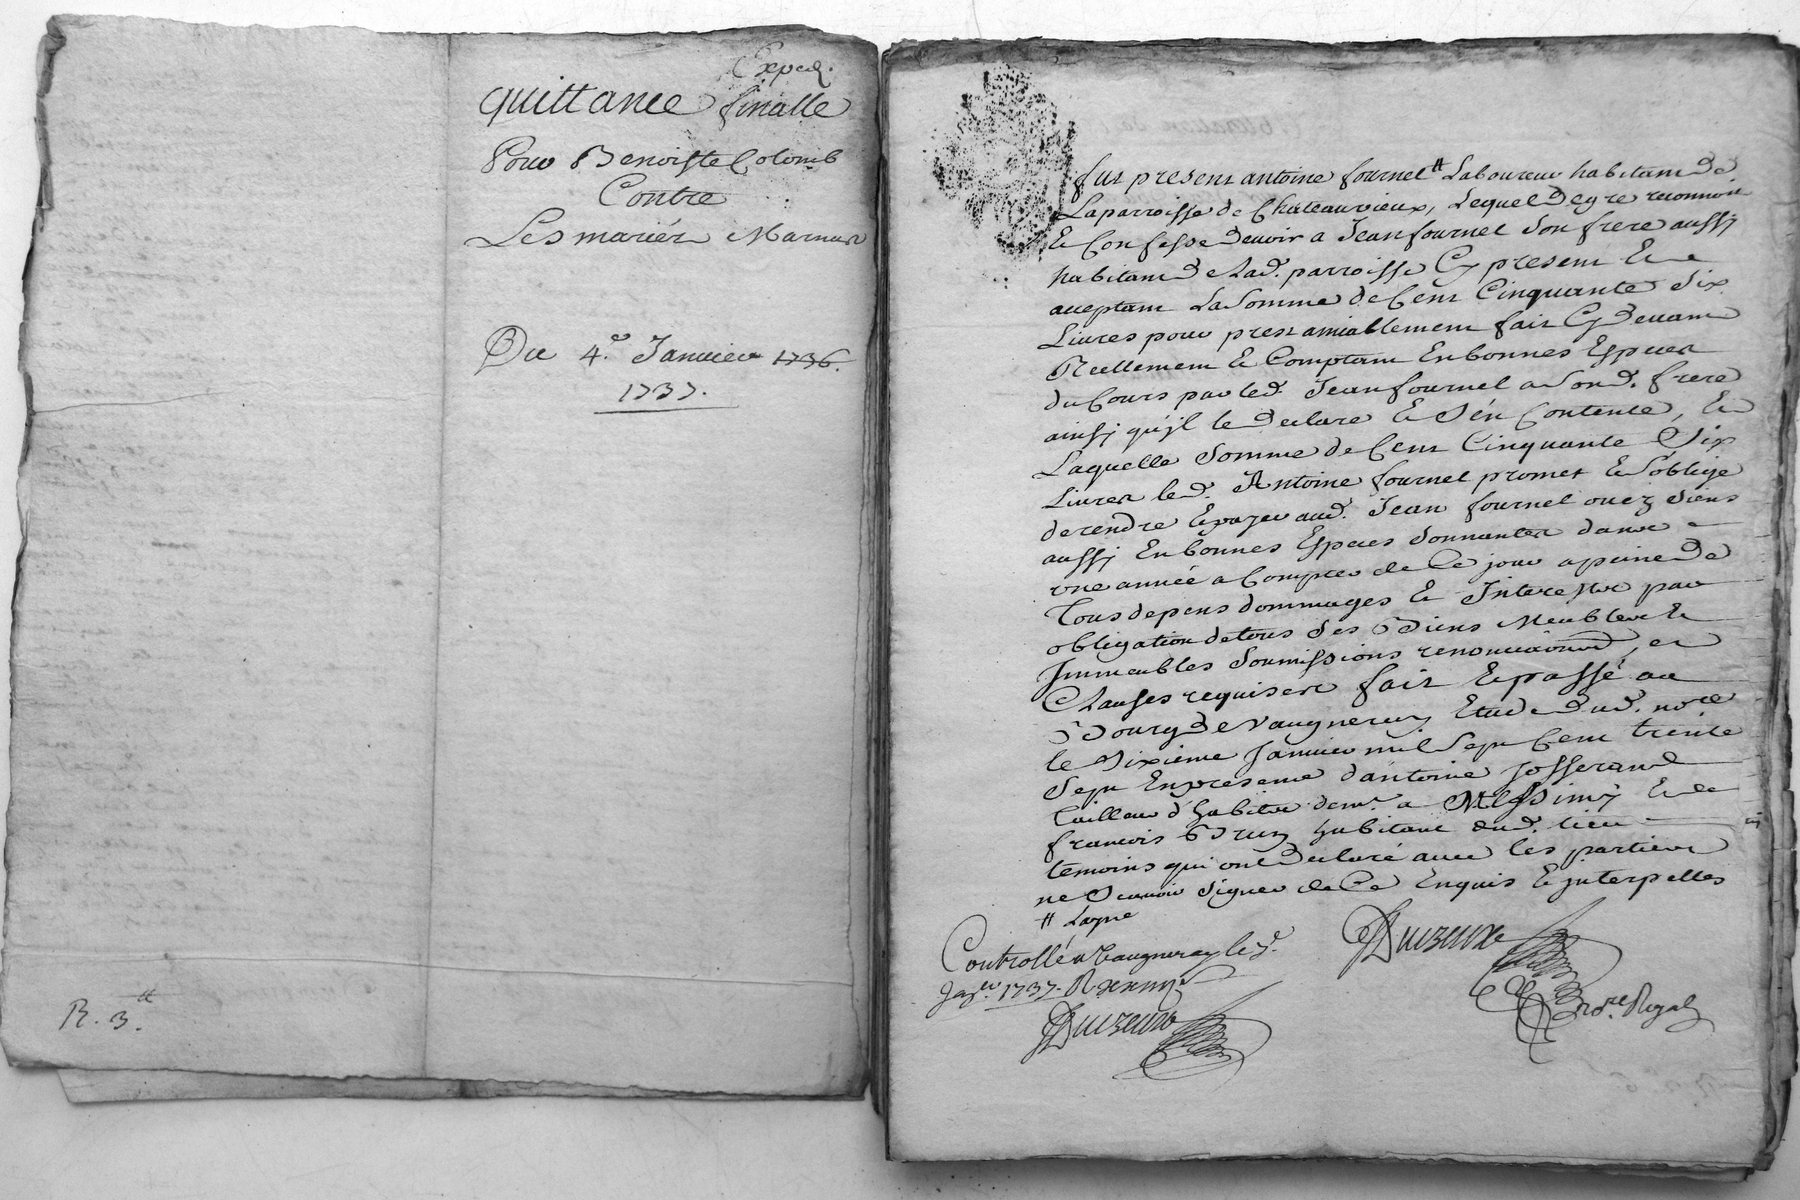 Exped.
quittance finalle
Pour Benoiste Colomb
Contre
Les mariéz Marnas
Du 4.e Janvier 1736.
1737.
R. 3.tt
fut present antoine fournel # Laboureur habitant de
La parroisse de Chateauvieux, Lequel de gre reconnoit
Et Confesse devoir a Jean fournel son frere aussj
habitant de Lad. parroisse Cy present Et
aceptant La Somme de Cent Cinquante Six
Livres pour prest amiablement fait Cy devant
Reellement Et Comptant En bonnes Especes
du Cours par led. Jean fournel a Sond. frere
ainsj qu'jl le declare Et s'en Contente, Et
Laquelle Somme de Cent Cinquante Six
Livres led. Antoine fournel promet Et s'oblige
de rendre Et payer aud. Jean fournel ou ez siens
aussj En bonnes Especes Sonnantes dans
une année a Compter de Ce jour a peine de
Tous depens dommages Et Interestz par
obligation de tous ses Biens Meubles Et
Jmmeubles Soumissions renonciations, et
Clauses requises fait Et passé au
Bourg de Vaugneray Etude dud. nore
le Sixieme Janvier mil Sept Cent trente
Sept En presence d'antoine Josserand
Tailleur d'habits demt a Messimy Et de
francois Brun habitant dud. lieu
temoins qui ont declaré avec les parties
ne Scavoir signer de Ce Enquis Et jnterpelles
# Layné
Controllé a Vaugneray le 7e.
Janer. 1737. R
Duzeure
Duzeure
nore. Royal